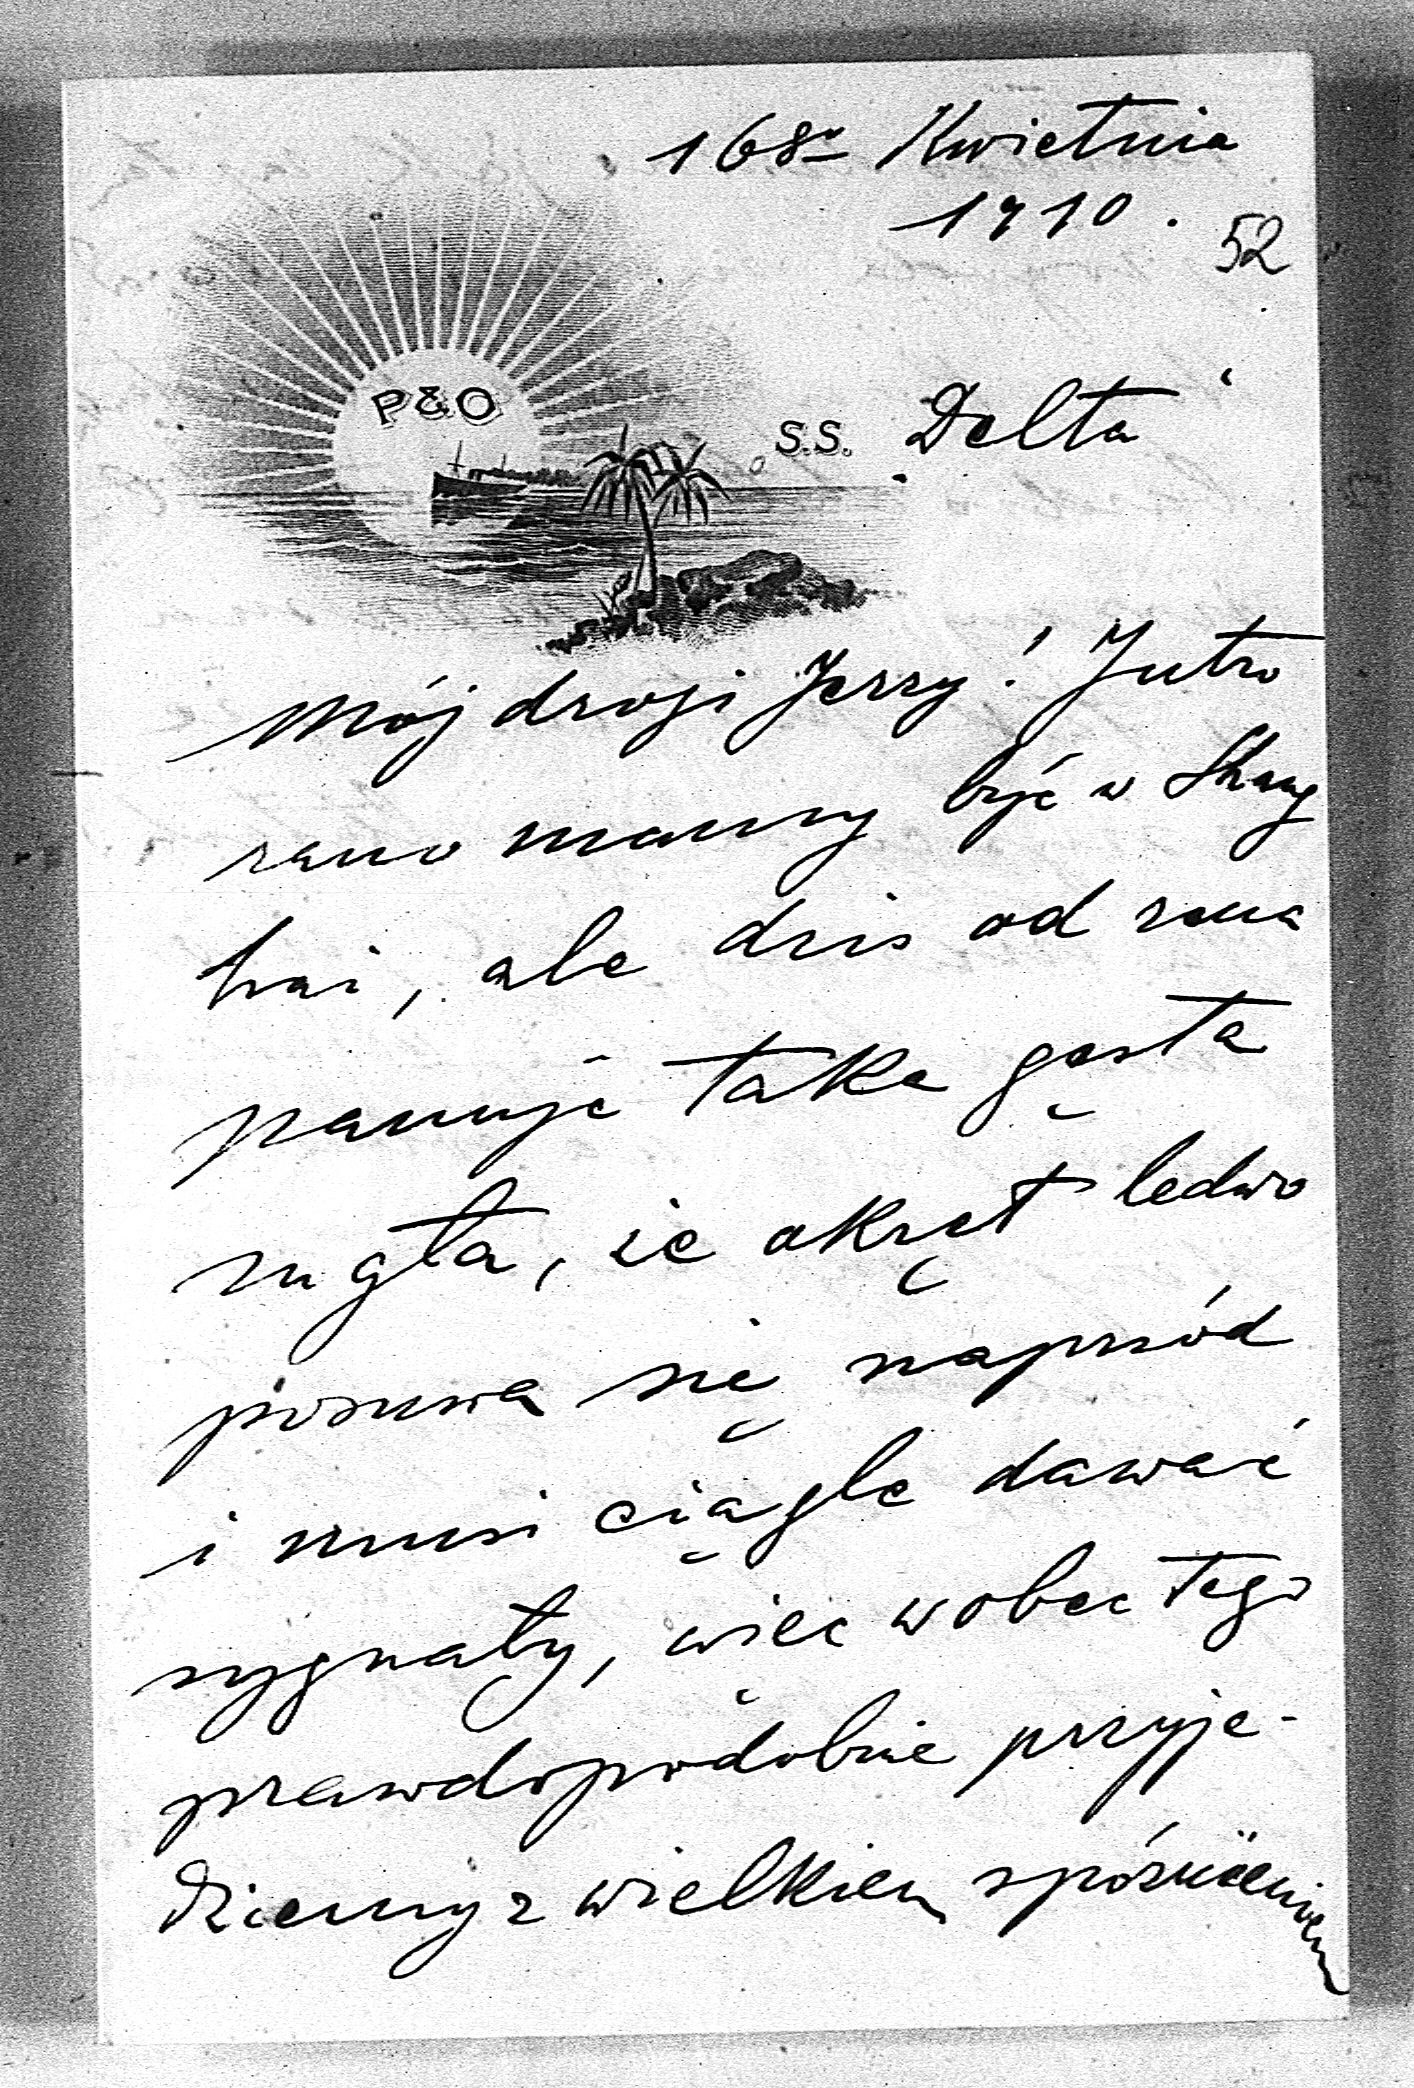 16go Kwietnia
1910.
52
P&O
S.S. „Delta“
Mój drogi Jerzy! Jutro
rano mamy być w Shang
hai, ale dziś od rana
panuje taka gęsta
mgła, że okręt ledwo
posuwa się naprzód
i musi ciągle dawać
sygnały, więc wobec tego
prawdopodobnie przyje-
dziemy z wielkiem spóźnieniem